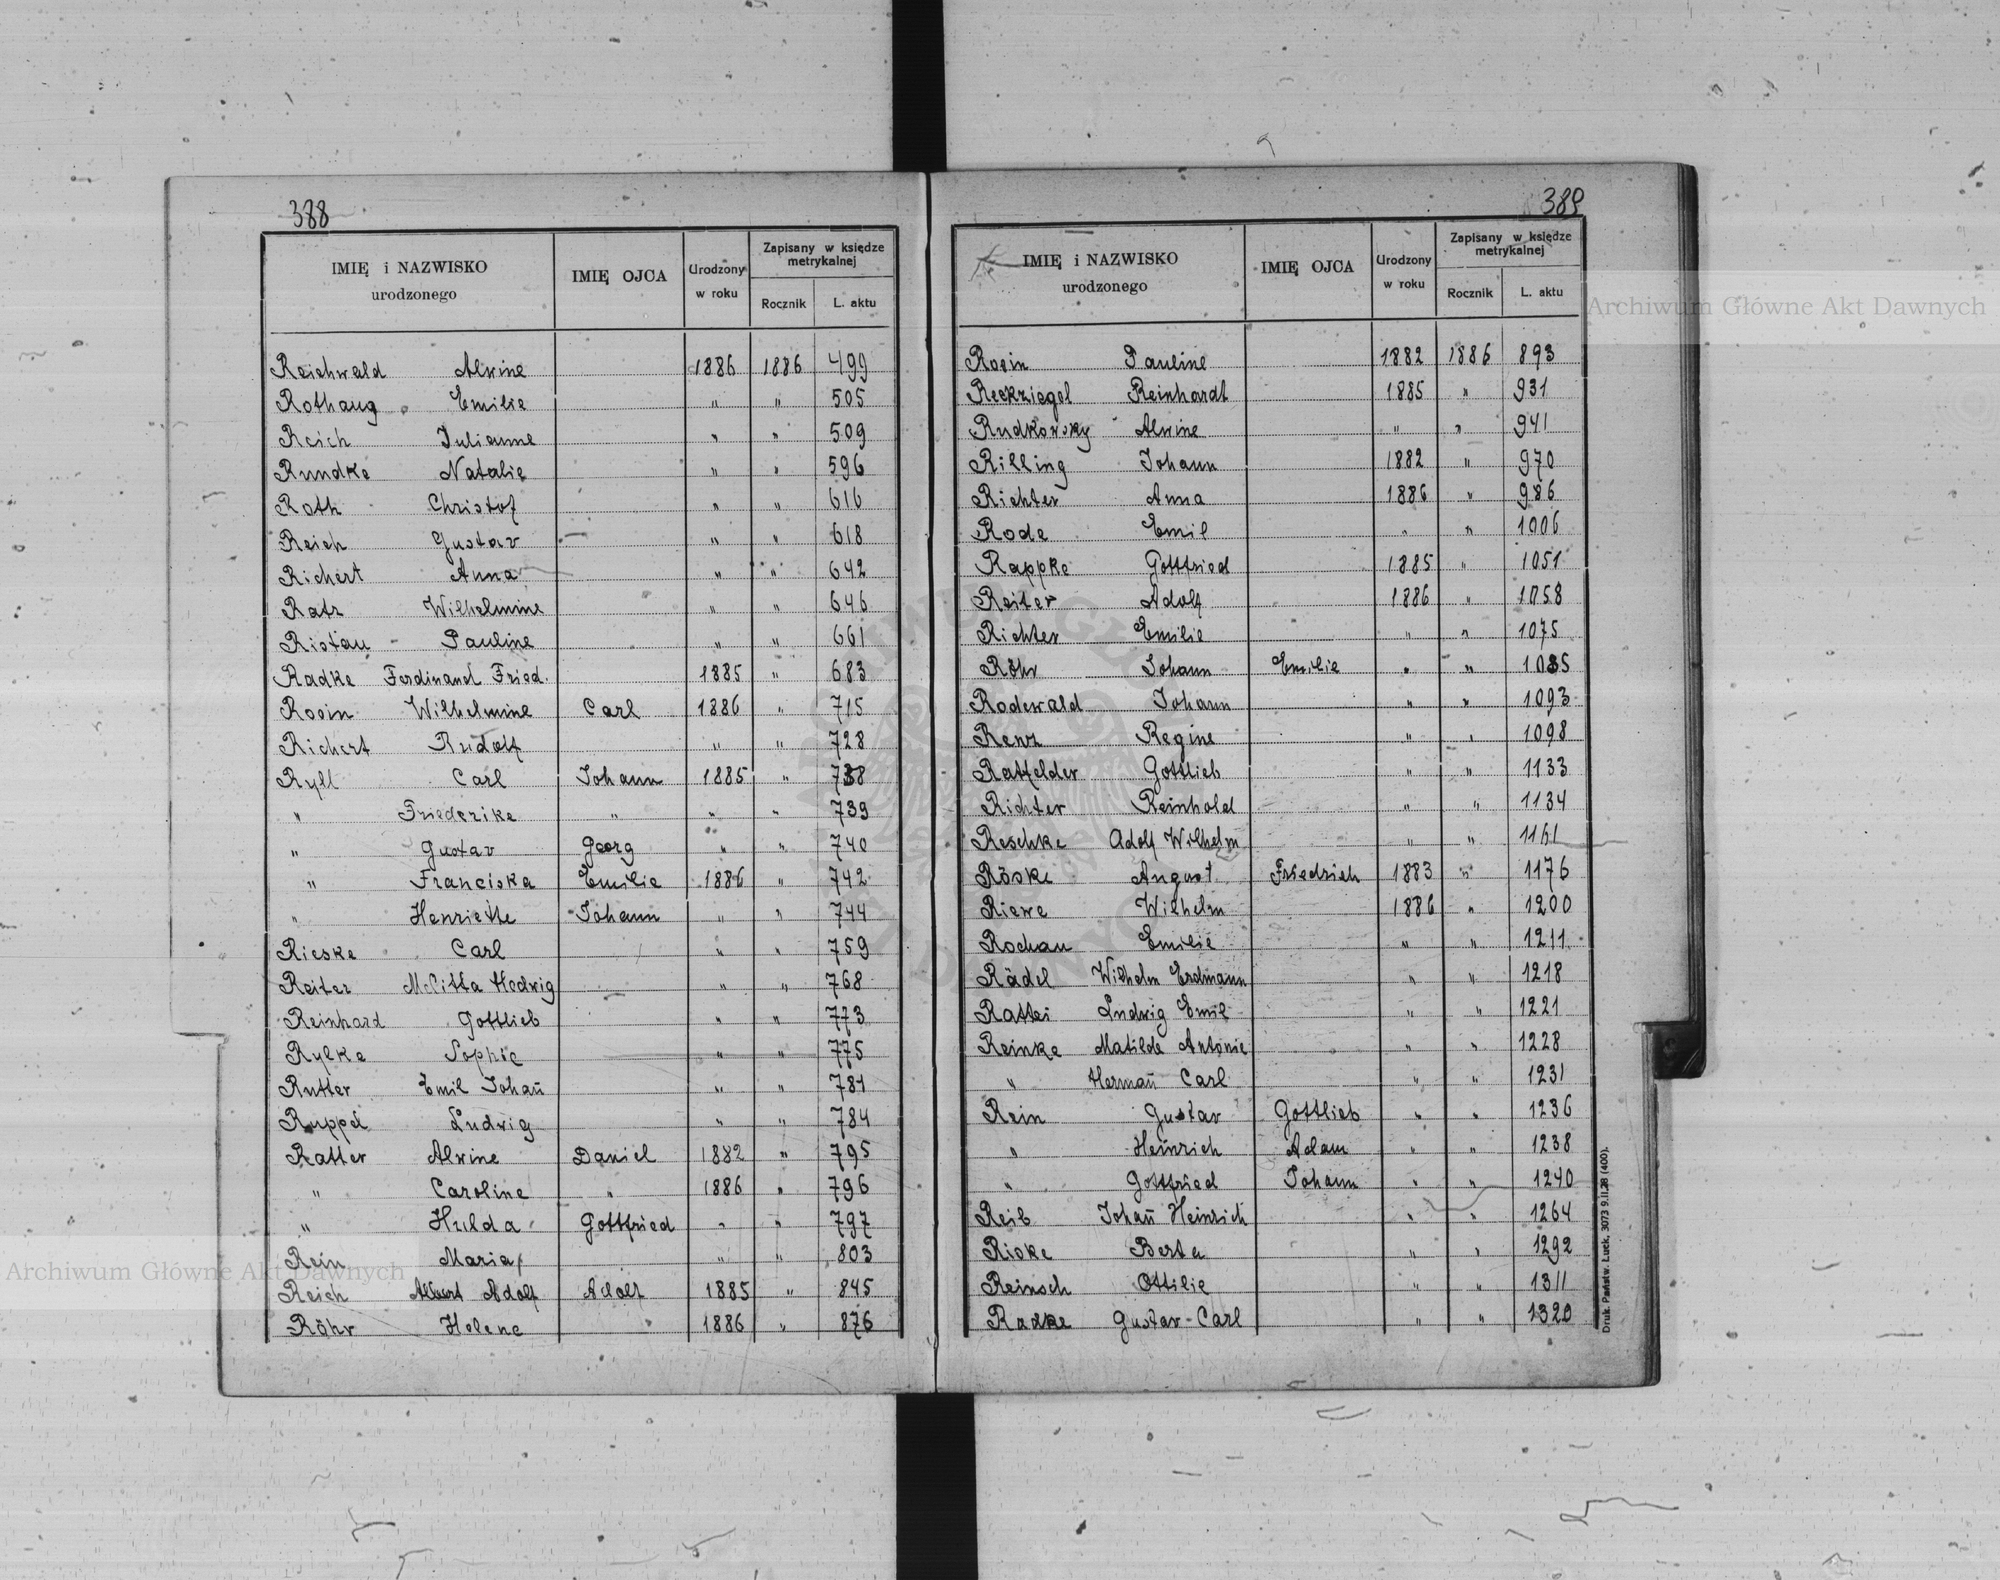 388
IMIĘ i NAZWISKO urodzonego IMIĘ OJCA Urodzony w roku Zapisany w księdze metrykalnej Rocznik L. aktu
Reichwald Alwine 1886 1886 499
Rothaug Emilie " " 505
Reich Julianne " " 509
Rundke Natalie " " 596
Roth Christof " " 616
Reich Gustav " " 618
Richert Anna " " 642
Ratz Wilhelmine " " 646
Ristau Pauline " " 661
Radke Ferdinand Fried. 1885 " 683
Rosin Wilhelmine Carl 1886 " 715
Richert Rudolf " " 728
Ryll Carl Johann 1885 " 738
" Friederike " " " 739
" Gustav Georg " " 740
" Franciska Emilie 1886 " 742
" Henriette Johann " " 744
Rieske Carl " " 759
Reiter Melitta Hedwig " " 768
Reinhard Gottlieb " " 773
Rylke Sophie " " 775
Rutter Emil Johañ " " 781
Ruppel Ludwig " " 784
Ratter Alwine Daniel 1882 " 795
" Caroline " 1886 " 796
" Hulda Gottfried " " 797
Rein Maria " " 803
Reich Albert Adolf Adolf 1885 " 845
Röhr Helene 1886 " 876
389
IMIĘ i NAZWISKO urodzonego IMIĘ OJCA Urodzony w roku Zapisany w księdze metrykalnej Rocznik L. aktu
Rosin Pauline 1882 1886 893
Reckziegel Reinhardt 1885 " 931
Rudkowsky Alwine " " 941
Rilling Johann 1882 " 970
Richter Anna 1886 " 986
Rode Emil " " 1006
Rappke Gottfried 1885 " 1051
Reiter Adolf 1886 " 1058
Richter Emilie " " 1075
Röhr Johann Emilie " " 1085
Rodewald Johann " " 1093
Renz Regine " " 1098
Ratfelder Gottlieb " " 1133
Richter Reinhold " " 1134
Reschke Adolf Wilhelm " " 1161
Röske August Friedrich 1883 " 1176
Riewe Wilhelm 1886 " 1200
Rochau Emilie " " 1211
Rädel Wilhelm Erdmann " " 1218
Rattei Ludwig Emil " " 1221
Reinke Matilde Antonie " " 1228
" Hermañ Carl " " 1231
Rein Gustav Gottlieb " " 1236
" Heinrich Adam " " 1238
" Gottfried Johann " " 1240
Reib Johañ Heinrich " " 1264
Riske Berta " " 1292
Reinsch Ottilie " " 1311
Radke Gustav-Carl " " 1320
Druk. Państw. Łuck, 3073 9.II.28 (400).
Archiwum Główne Akt Dawnych
Archiwum Główne Akt Dawnych